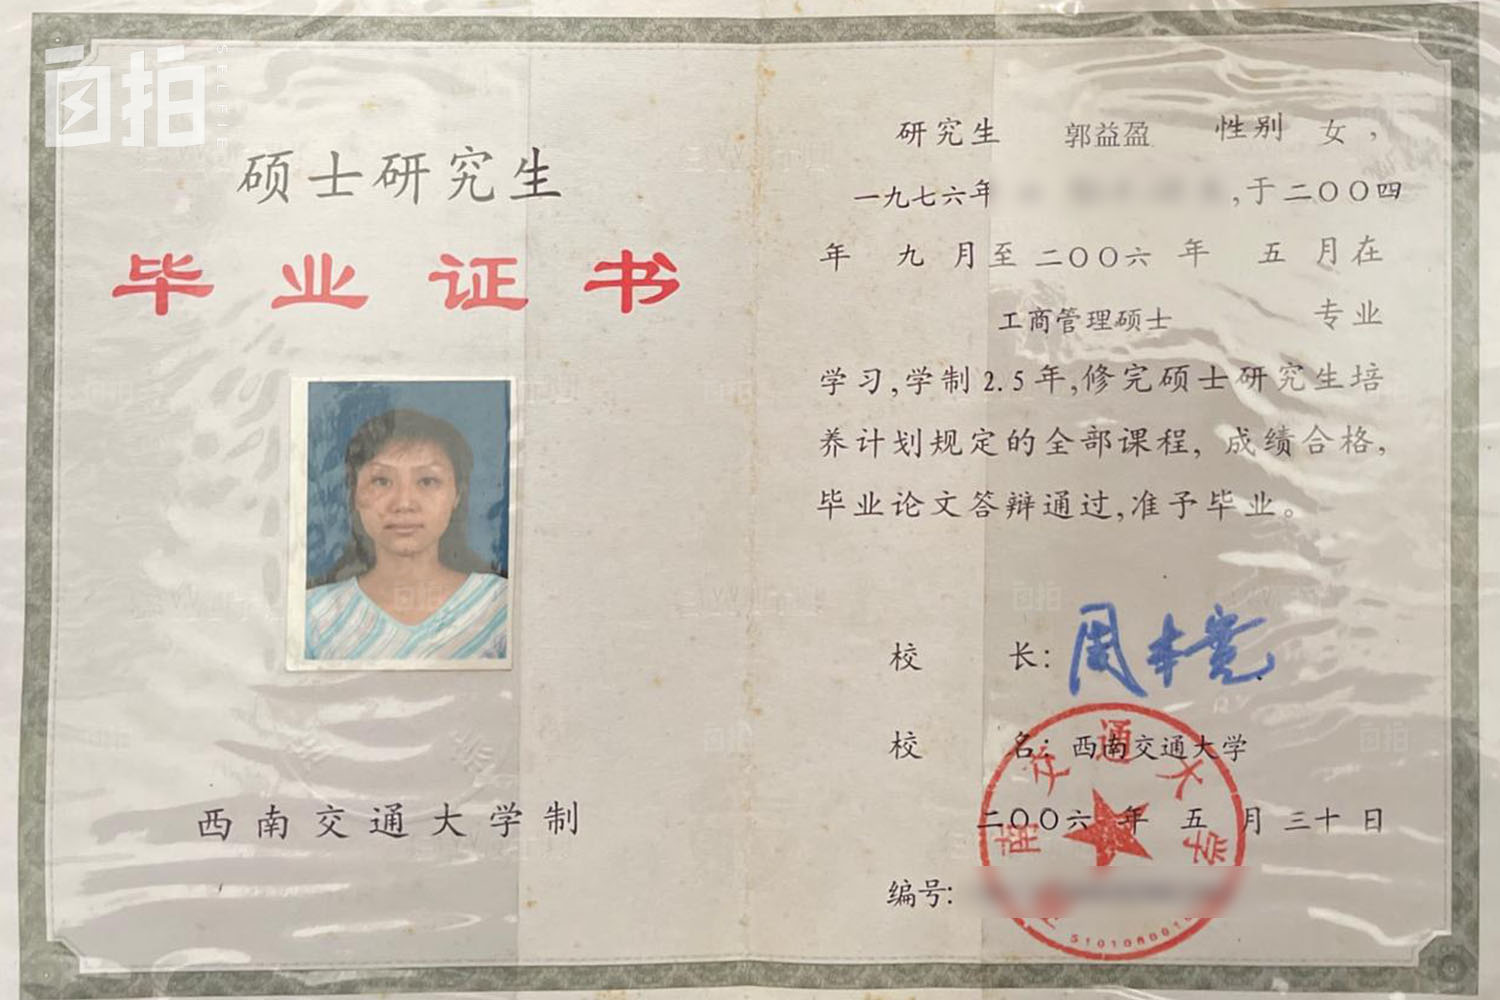 自拍
SELFIE
硕士研究生
毕业证书
西南交通大学制
研究生 郭益盈 性别 女，
一九七六年 ,于二〇〇四
年 九 月至 二〇〇六 年 五 月在
工商管理硕士 专业
学习,学制2.5年,修完硕士研究生培
养计划规定的全部课程, 成绩合格,
毕业论文答辩通过,准予毕业。
校 长: 周本宽
校 名: 西南交通大学
二〇〇六 年 五 月 三十 日
编号:
南交通大学